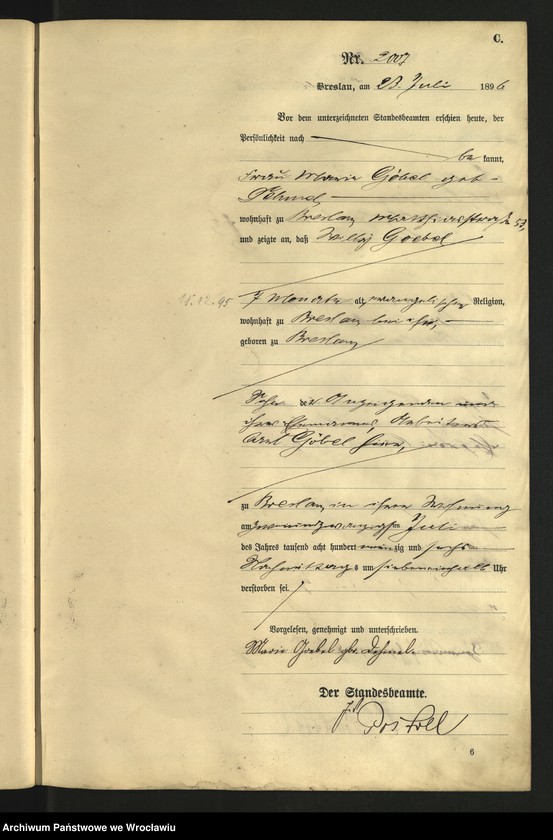 C.
Nr. 2007
Breslau, am 23. Juli 1896
Vor dem unterzeichneten Standesbeamten erschien heute, der
Persönlichkeit nach
be kannt,
Frau Marie Göbel geb-
wohnhaft zu Breslau, Matthiasstraße 53,
und zeigte an, daß Willy Goebel
11.12.95
7 Monate alt, evangelischer Religion,
wohnhaft zu Breslau bei ihr,
geboren zu Breslau
Sohn der Anzeigenden und
ihres Ehemannes, Arbeiters
Göbel hier,
zu Breslau, in ihrer Wohnung
am zweiundzwanzigsten Juli
des Jahres tausend acht hundert neunzig und sechs
Nachmittags um siebeneinhalb Uhr
verstorben sei.
Vorgelesen, genehmigt und unterschrieben.
Marie Goebel gbr. Dehmel.
Der Standesbeamte.
6
Archiwum Państwowe we Wrocławiu